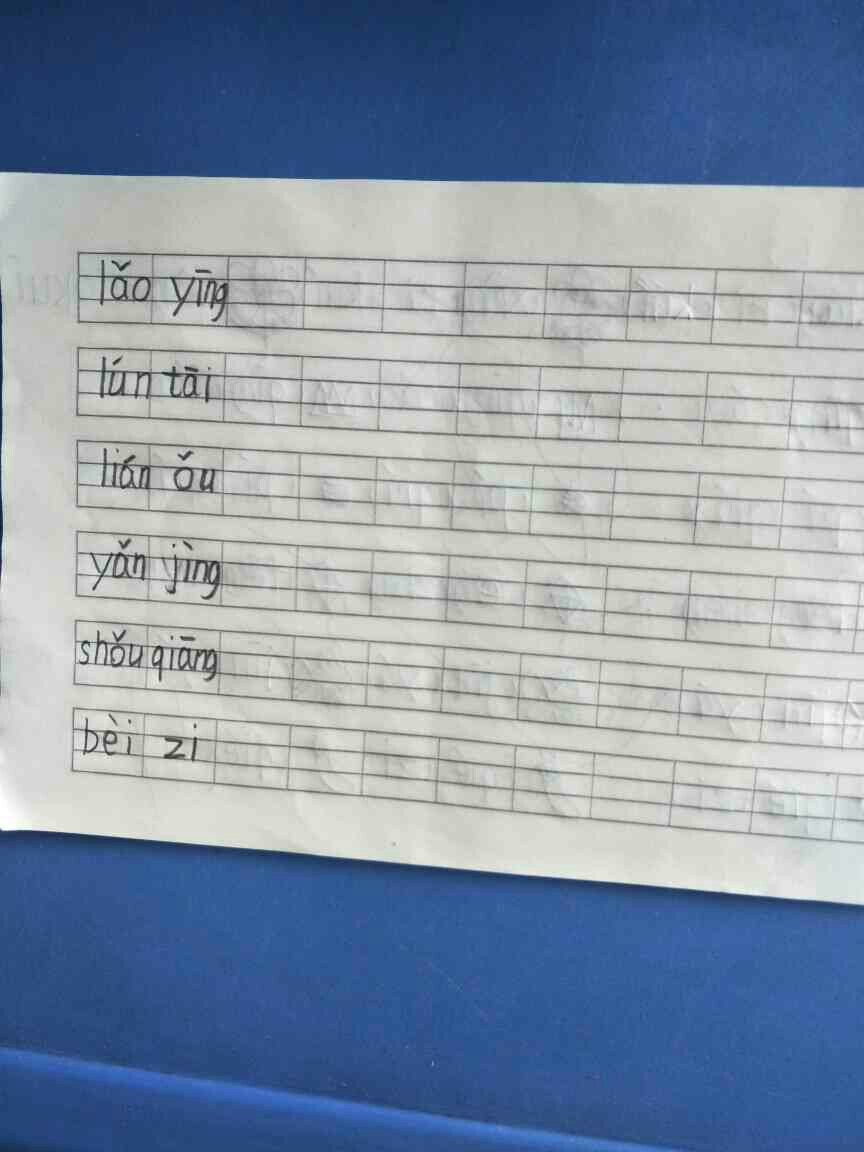 lǎo yīng
lún tāi
lián ǒu
yǎn jìng
shǒu qiāng
bèi zi